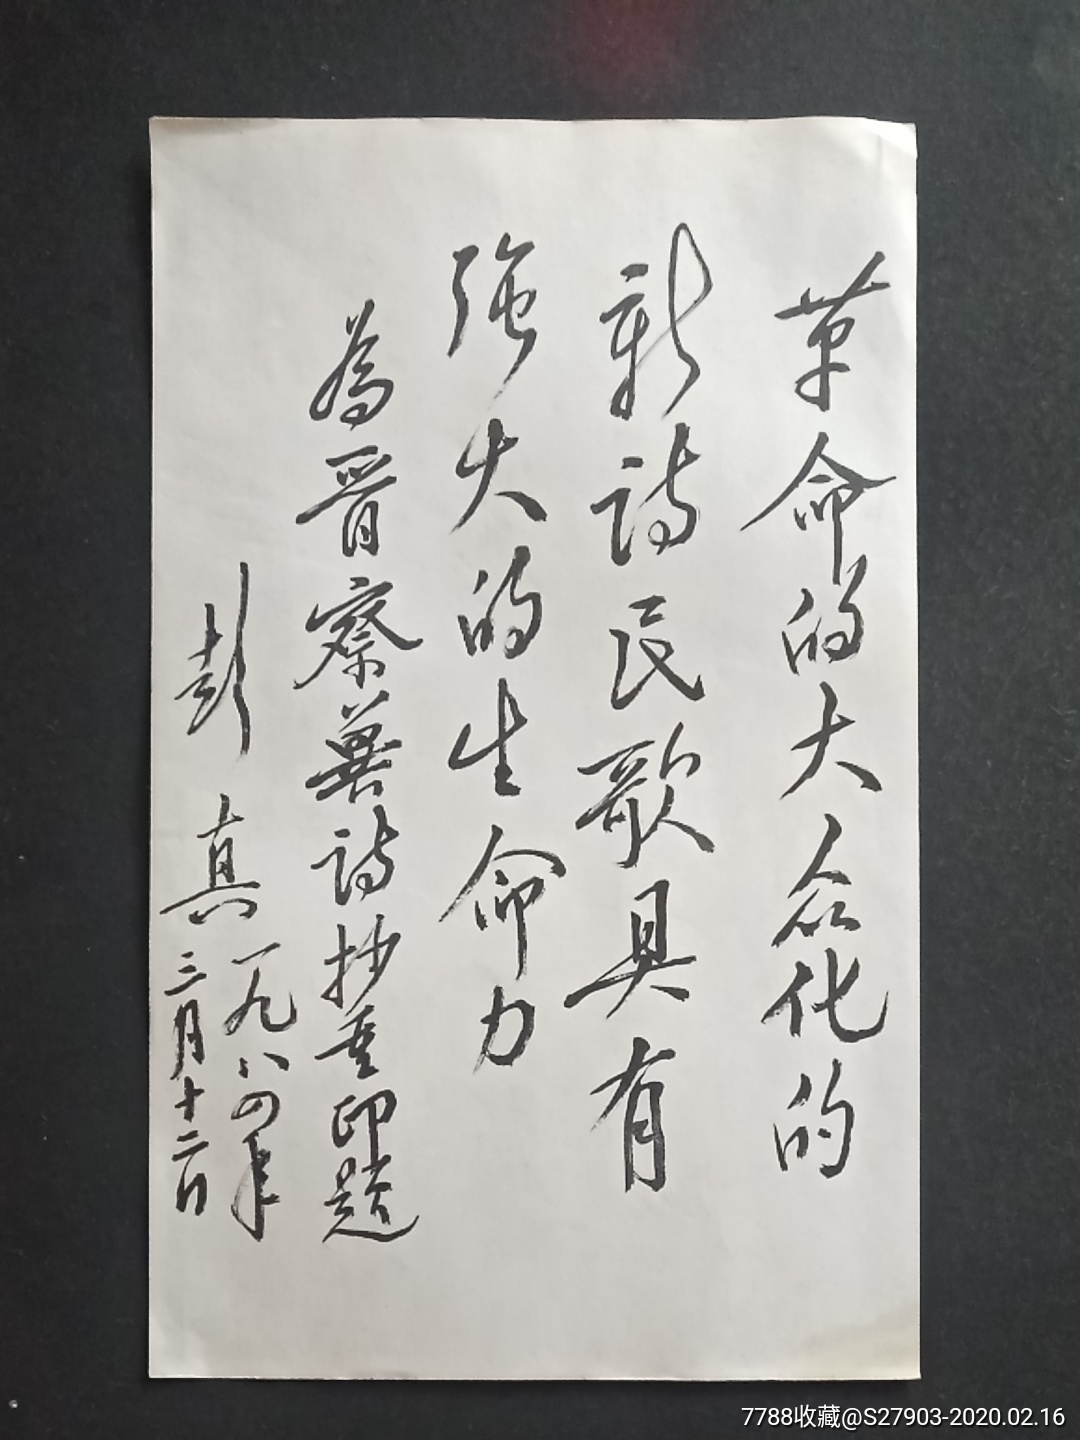 革命的大众化的
新詩民歌具有
强大的生命力
為晋察冀詩抄重印題
彭真
一九八四年
三月十二日
7788收藏@S27903-2020.02.16